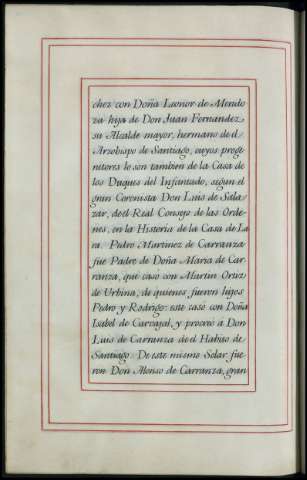 chez con Doña Leonor de Mendo
za hija de Don Juan Fernandez
su Alcalde mayor, hermano de el
Arzobispo de Santiago, cuyos progr
nitores lo son tambien de la Casa de
los Duques del Infantado, segun el
gran Coronista Don Luis de Sala
zar, de el Real Consejo de las Orde
nes, en la Historia de la Casa de La
ra. Pedro Martinez de Carranza
fue Padre de Doña Maria de Car
ranza, que casò con Martin Ortiz
de Urbina, de quienes fueron hijos
Pedro y Rodrigo: este casò con Doña
Isabel de Carvajal, y procreò a Don
Luis de Carranza de el Habito de
Santiago. De este mismo Solar fue
ron Don Alonso de Carranza, gran